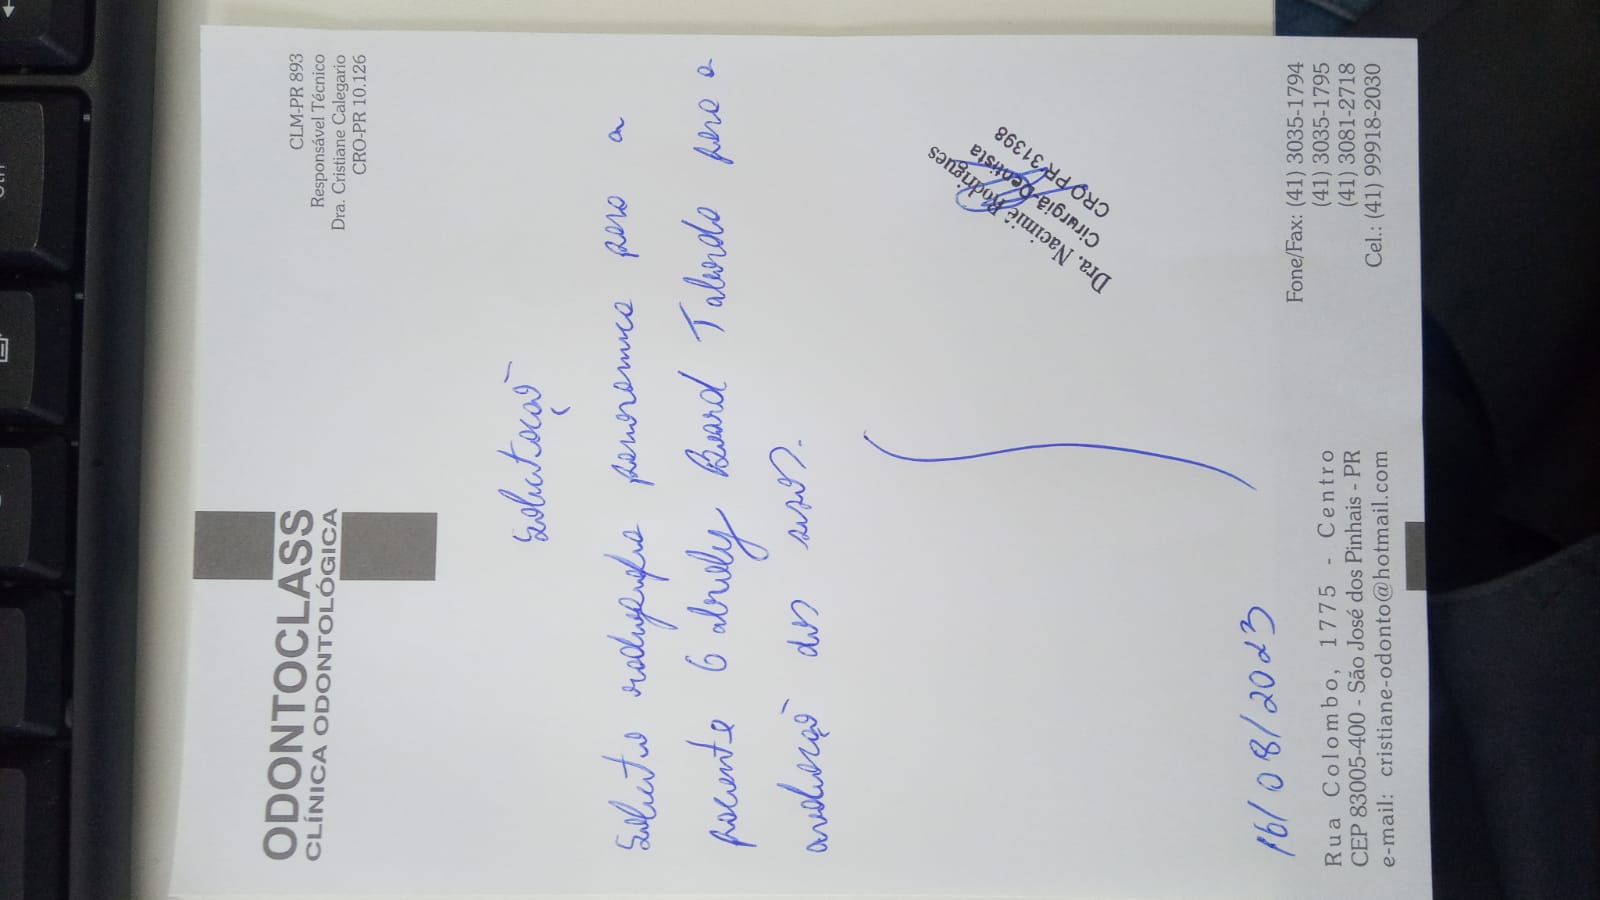 ODONTOCLASS
CLÍNICA ODONTOLÓGICA
CLM-PR 893
Responsável Técnico
Dra. Cristiane Calegario
CRO-PR 10.126
Solicitação
Solicito radiografia panoramica para a
paciente Talendo para a
avaliação dos sisos.
Dra. Nacimié Rodrigues
Cirurgiã-Dentista
CRO PR 31398
16/08/2023
Rua Colombo, 1775 - Centro
CEP 83005-400 - São José dos Pinhais - PR
e-mail: cristiane-odonto@hotmail.com
Fone/Fax: (41) 3035-1794
(41) 3035-1795
(41) 3081-2718
Cel.: (41) 99918-2030